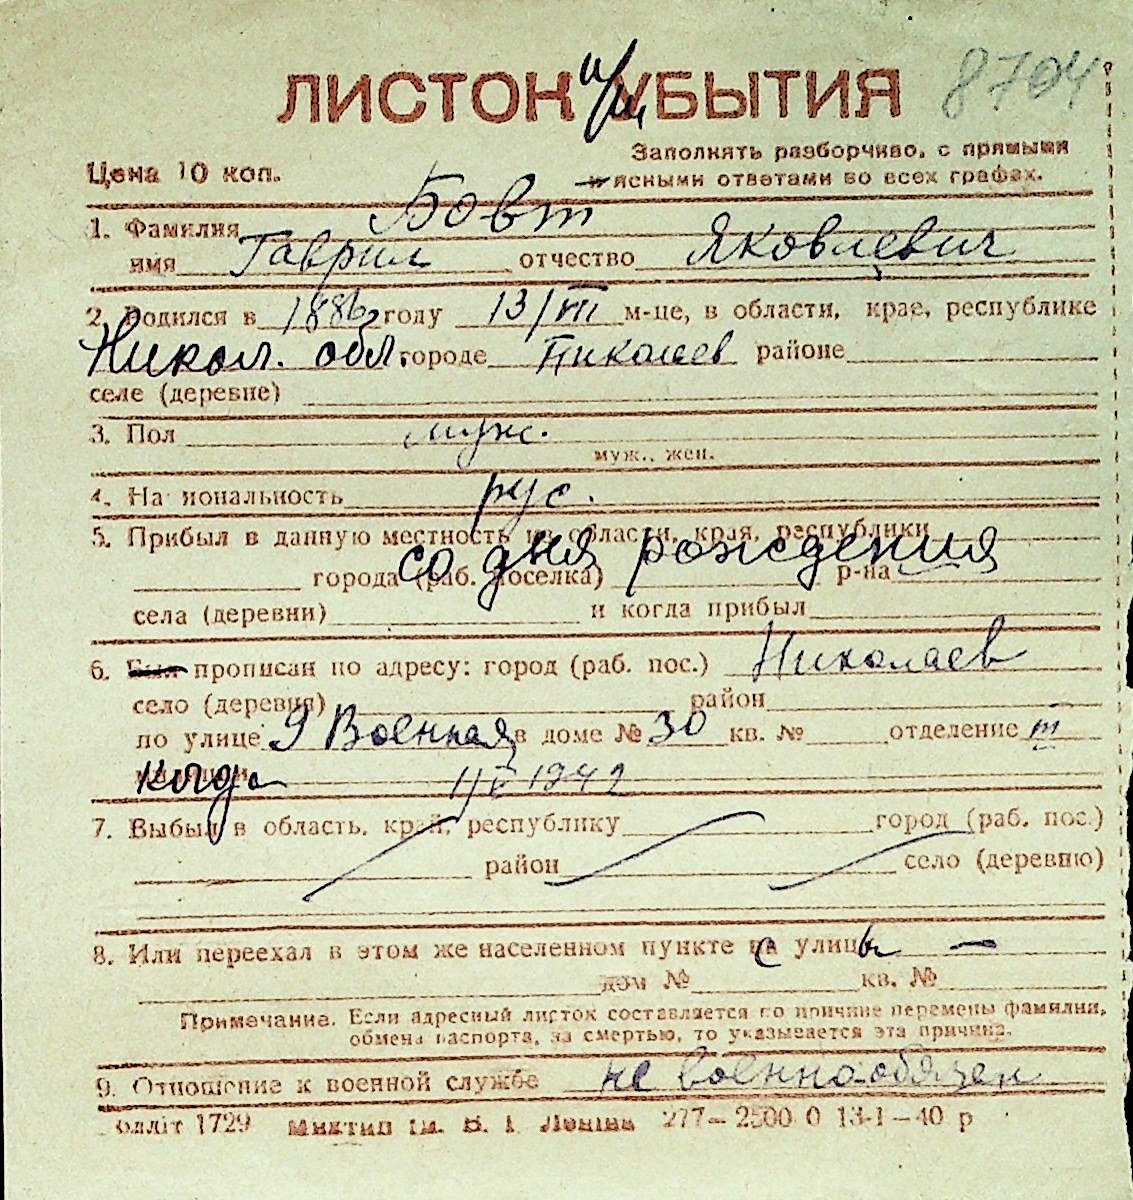 ЛИСТОК УБЫТИЯ 8704
Цена 10 коп.
Заполнять разборчиво, с прямыми
и ясными ответами во всех графах.
1. Фамилия Бовт
имя Гаврил отчество Яковлевич
2. Родился в 1886 году 13/III м-це, в области, крае, республике
Никол. обл. городе Николаев районе
селе (деревне)
3. Пол муж.
муж., жен.
4. Национальность рус.
5. Прибыл в данную местность из области, края, республики
со дня рождения
города (раб. поселка) р-на
села (деревни) и когда прибыл
6. Был прописан по адресу: город (раб. пос.) Николаев
село (деревня) район
по улице 9 Военная в доме № 30 кв. № отделение III
милиции Когда 1942
7. Выбыл в область, край, республику город (раб. пос.)
район село (деревню)
8. Или переехал в этом же населенном пункте с улицы —
дом № кв. №
Примечание. Если адресный листок составляется по причине перемены фамилии,
обмена паспорта, за смертью, то указывается эта причина.
9. Отношение к военной службе не военнообязан
олліт 1729 Миктип ім. В. І. Леніна 277—2500 0 13-1—40 р